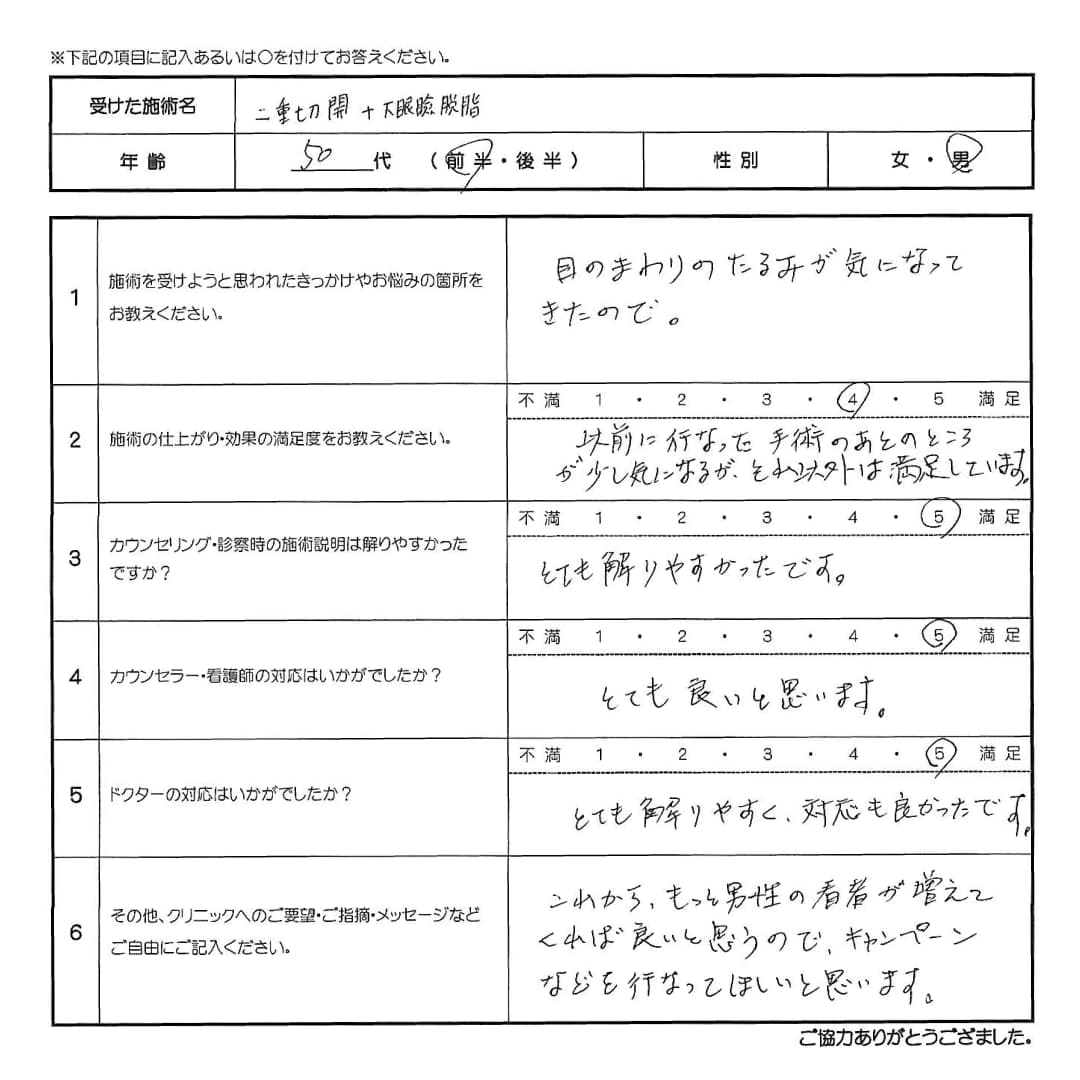 ※下記の項目に記入あるいは〇を付けてお答えください。
受けた施術名 二重切開+下眼瞼脱脂
年齢 50代 (前半・後半) 性別 女・男
1 施術を受けようと思われたきっかけやお悩みの箇所を
お教えください。
目のまわりのたるみが気になって
きたので。
2 施術の仕上がり・効果の満足度をお教えください。
不満 1 ・ 2 ・ 3 ・ 4 ・ 5 満足
以前に行なった手術のあとのところ
が少し気になるが、それ以外は満足しています。
3 カウンセリング・診察時の施術説明は解りやすかった
ですか?
不満 1 ・ 2 ・ 3 ・ 4 ・ 5 満足
とても解りやすかったです。
4 カウンセラー・看護師の対応はいかがでしたか?
不満 1 ・ 2 ・ 3 ・ 4 ・ 5 満足
とても良いと思います。
5 ドクターの対応はいかがでしたか?
不満 1 ・ 2 ・ 3 ・ 4 ・ 5 満足
とても解りやすく、対応も良かったです。
6 その他、クリニックへのご要望・ご指摘・メッセージなど
ご自由にご記入ください。
これから、もっと男性の看者が増えて
くれば良いと思うので、キャンペーン
などを行なってほしいと思います。
ご協力ありがとうござました。